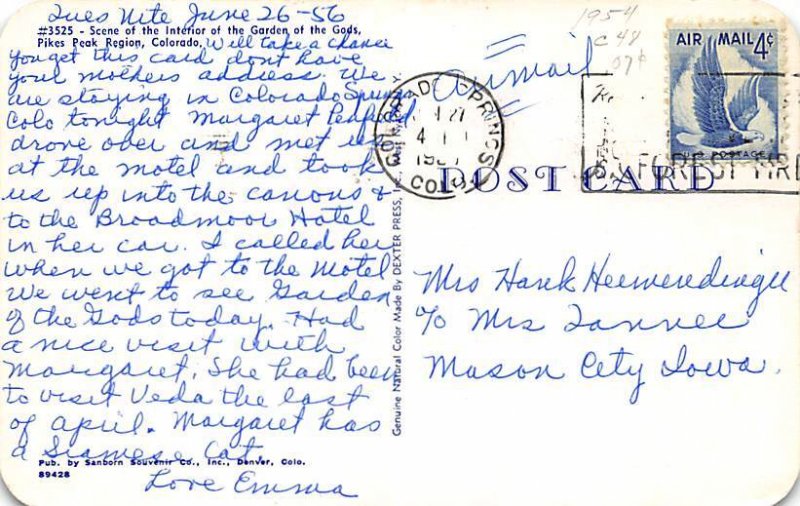 Tues Nite June 26-56
#3525 - Scene of the Interior of the Garden of the Gods,
Pikes Peak Region, Colorado.
Will take a chance
you get this card dont have
your mothers address. We
are staying in Colorado Springs
Colo tonight Margaret
drove over and met us
at the motel and took
us up into the canons &
to the Broadmoor Hotel
in her car. I called her
when we got to the Motel
We went to see Garden
of the Gods today. Had
a nice visit with
Margaret. She had been
to visit Veda the last
of April. Margaret has
a Siamese Cat.
Pub. by Sanborn Souvenir Co., Inc., Denver, Colo.
89428
Love Emma
Genuine Natural Color Made By DEXTER PRESS, Inc.
Airmail
1954
C 48
07¢
AIR MAIL 4¢
COLORADO SPRINGS
COLO.
FOREST FIRE
POST CARD
Mrs Hank
c/o Mrs
Mason City Iowa.